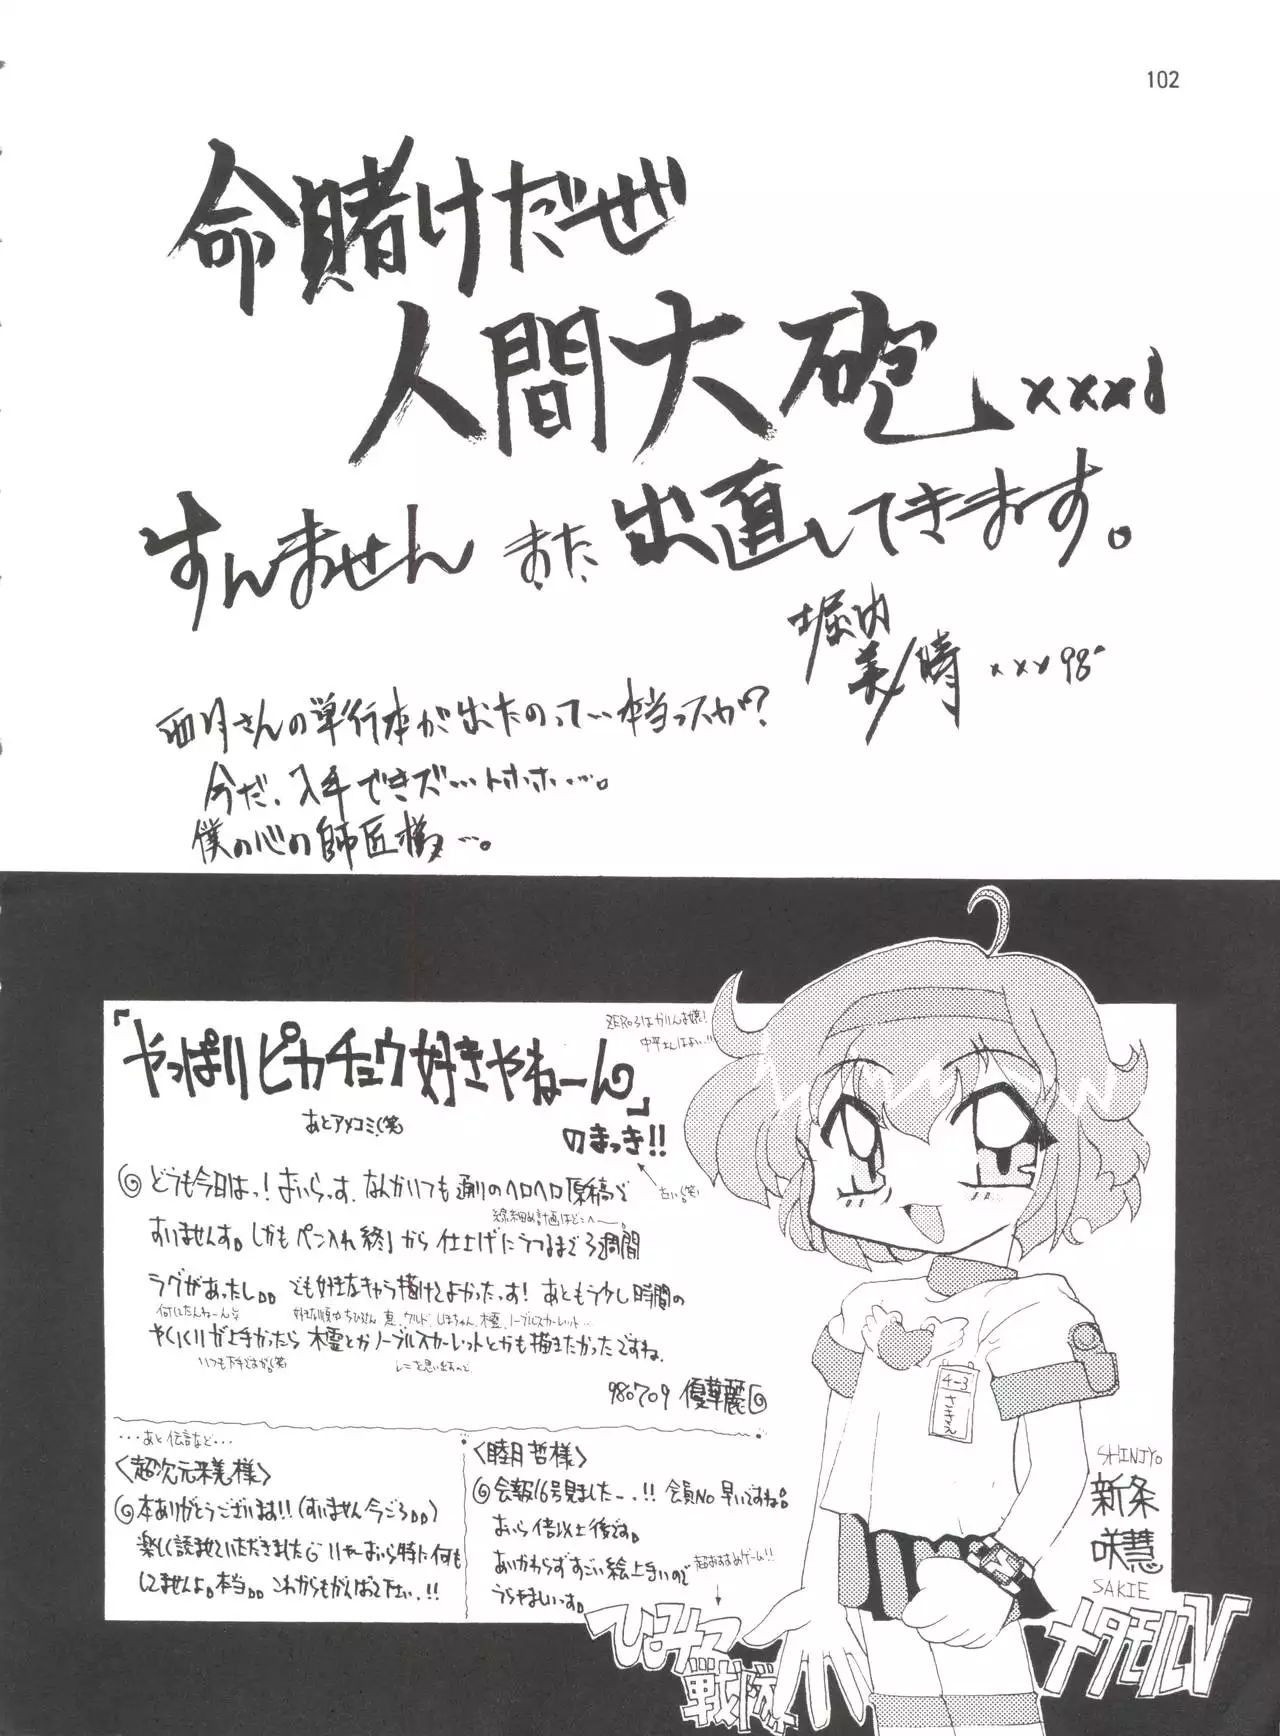 102
命賭けだぜ
人間大砲×××!
すんません また 出直してきます。
堀内
美晴 ×××98'
西月さんの単行本が出たのって…本当っスか?
今だ、入手できズ…トホホ…。
僕の心の師匠様…。
「やっぱりピカチュウ好きやねーん」
のまっき!!
あとアメコミ(笑)
古い(笑)
中平さんはよい!!
どうも今日はっ! おいらっす。なんかいつも通りのヘロヘロ原稿で
線細め計画はどこへ〜。
すいませんす。しかもペン入れ終了から仕上げにうつるまで3週間
ラグがあったし。。 でも好きなキャラ描けてよかったっす! あともう少し時間の
何してたんねーん
やくくりが上手かったら 木霊とかノーブルスカーレットとかも描きたかったですね。
いつも下手ですが(笑)
980709 優華麗
…あと伝言など…
〈超次元采美様〉
本ありがとうございます!! (すいません今ごろ。。)
楽しく読ませていただきました いやーおいら特に何も
してませんよ。本当。。これからもがんばって下さい.!!
〈睦月哲様〉
会報16号見ました〜.!! 会員No早いですね。
おいら倍以上後です。
あいかわらずすごい絵上手いので
うらやましいっす。
超おすすめゲーム!!
ひみつ
戦隊
メタモルV
4-3
さきえ
SHINJYO
新条
咲慧
SAKIE